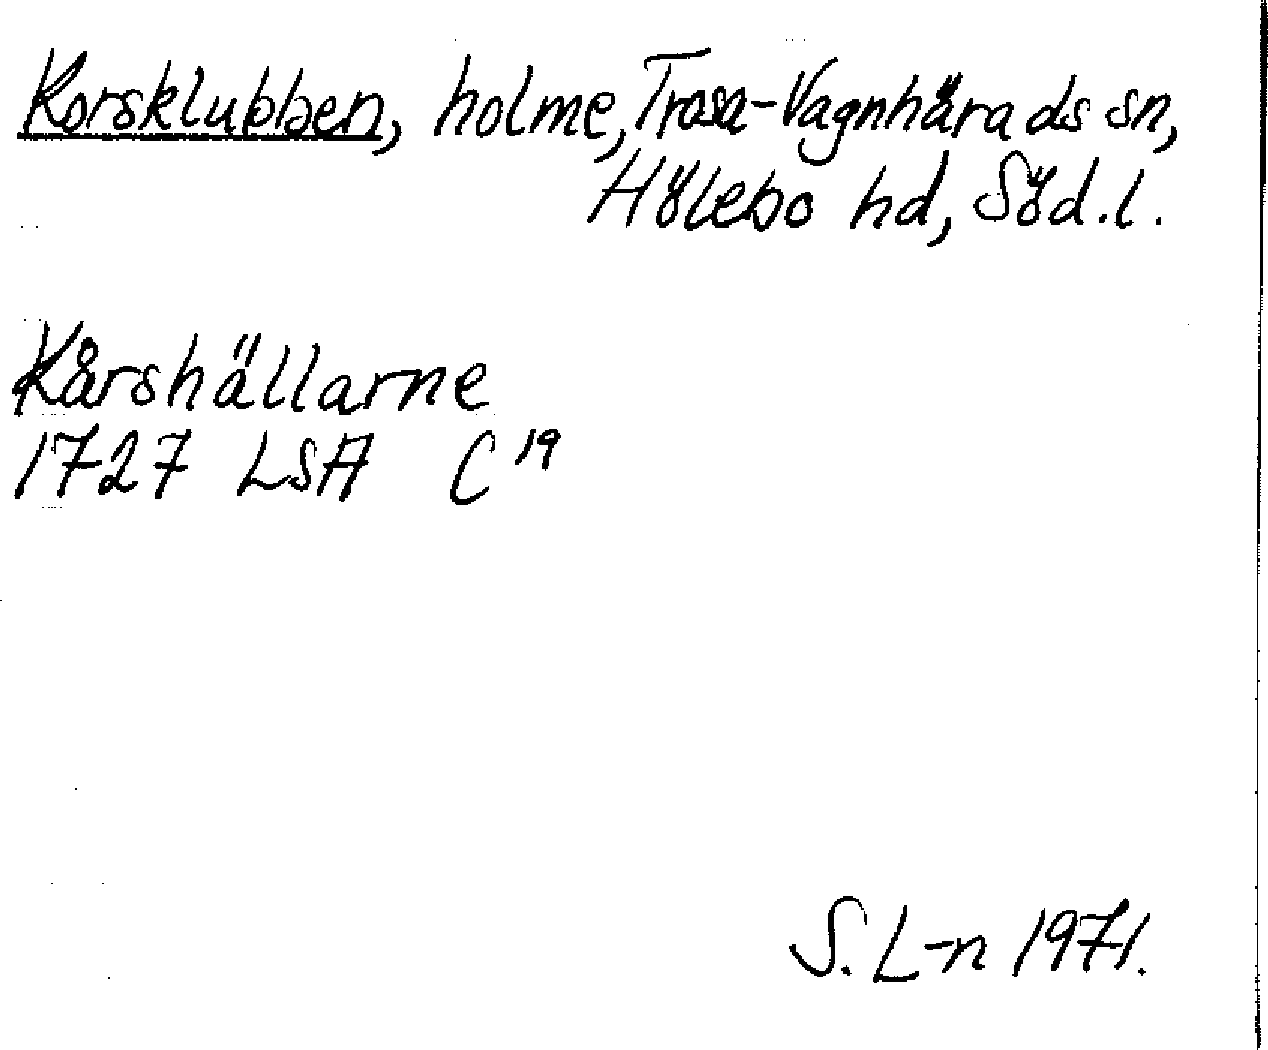 Korsklubben, holme, Trosa-Vagnhärads sn,
Hölebo hd, Söd.l.
Kårshällarne
1727 LSA C 19
S. L-n 1971.